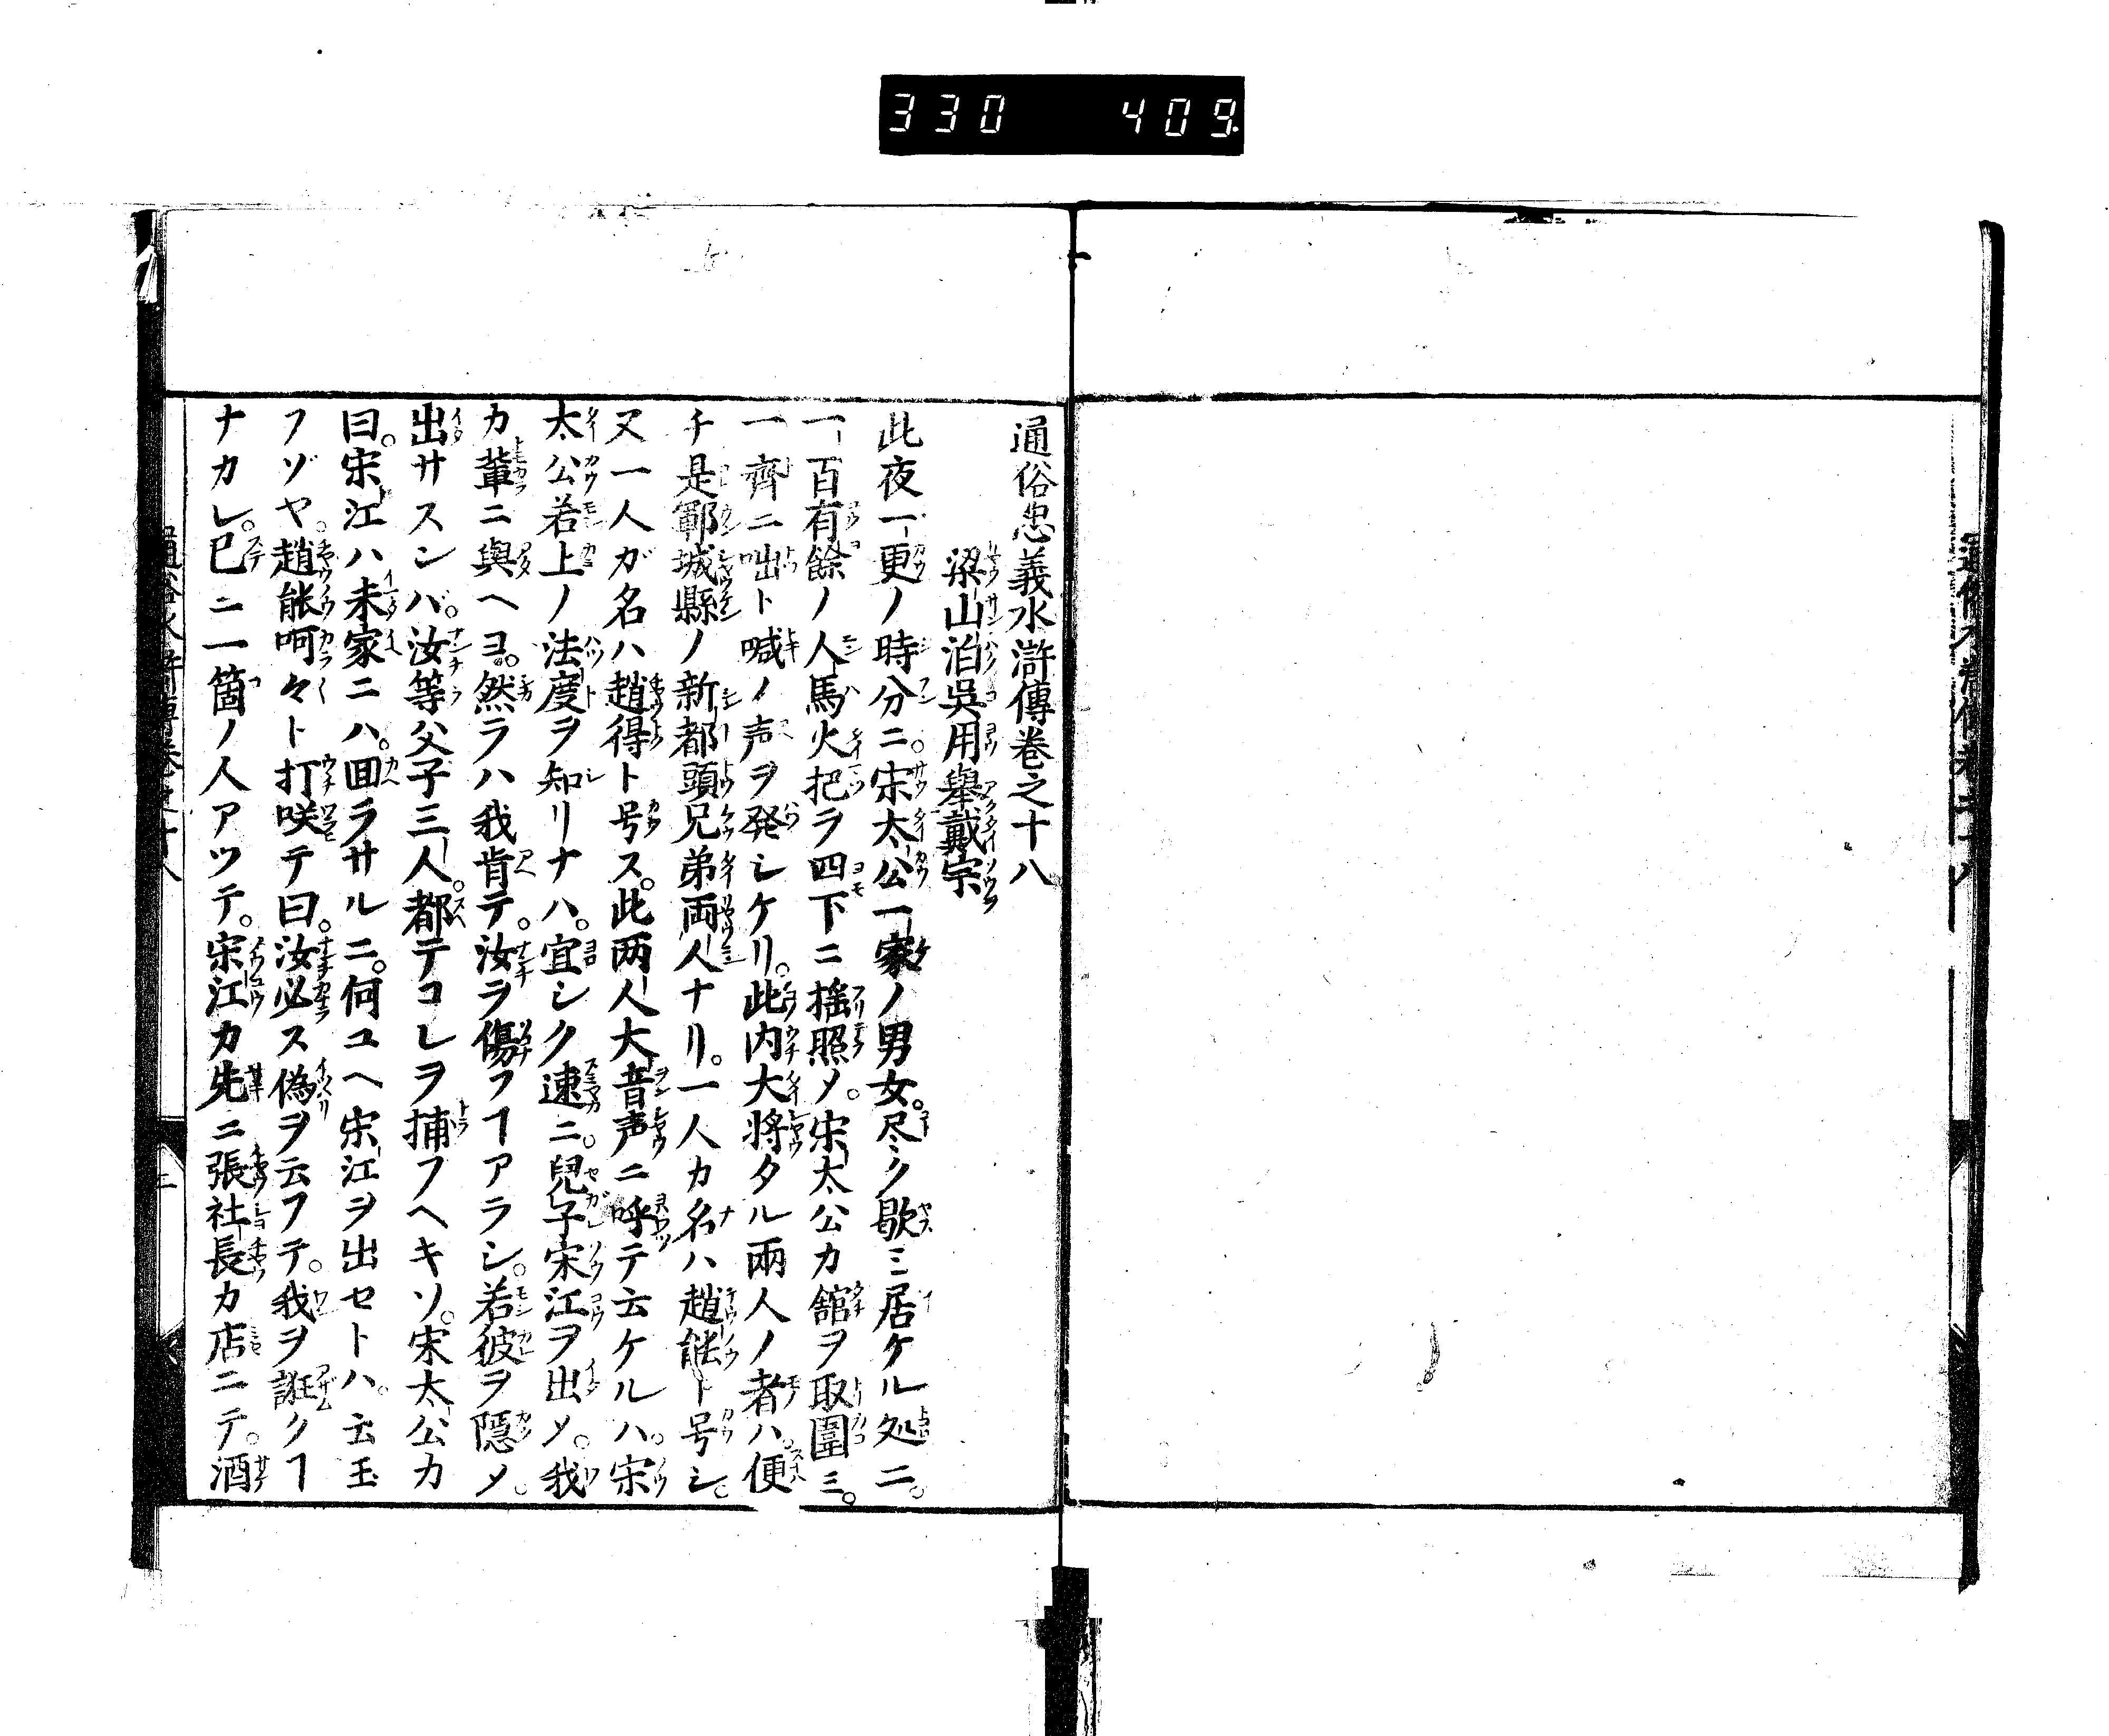 330 409.
通俗忠義水滸傳卷之十八
梁山泊吳用舉戴宗
此夜一更ノ時分ニ。宋太公一家ノ男女。尽ク歇ミ居ケル処ニ。
一百有餘ノ人馬火把ヲ四下ニ揺照メ。宋太公カ舘ヲ取圍ミ。
一齊ニ咄ト喊ノ声ヲ発シケリ。此内大将タル兩人ノ者ハ。便
チ是鄆城縣ノ新都頭兄弟両人ナリ。一人カ名ハ趙能ト号シ。
又一人ガ名ハ趙得ト号ス。此両人大音声ニ呼テ云ケルハ。宋
太公若上ノ法度ヲ知リナハ。宜シク速ニ。兒子宋江ヲ出メ。我
カ輩ニ與ヘヨ。然ラハ我肯テ。汝ヲ傷フヿアラシ。若彼ヲ隠メ。
出サスンバ。汝等父子三人。都テコレヲ捕フヘキソ。宋太公カ
曰。宋江ハ未家ニハ。囬ラサルニ。何ユヘ宋江ヲ出セトハ。云玉
フゾヤ。趙能呵々ト打咲テ曰。汝必ス偽ヲ云フテ。我ヲ誑クヿ
ナカレ。已ニ一箇ノ人アツテ。宋江カ先ニ張社長カ店ニテ。酒